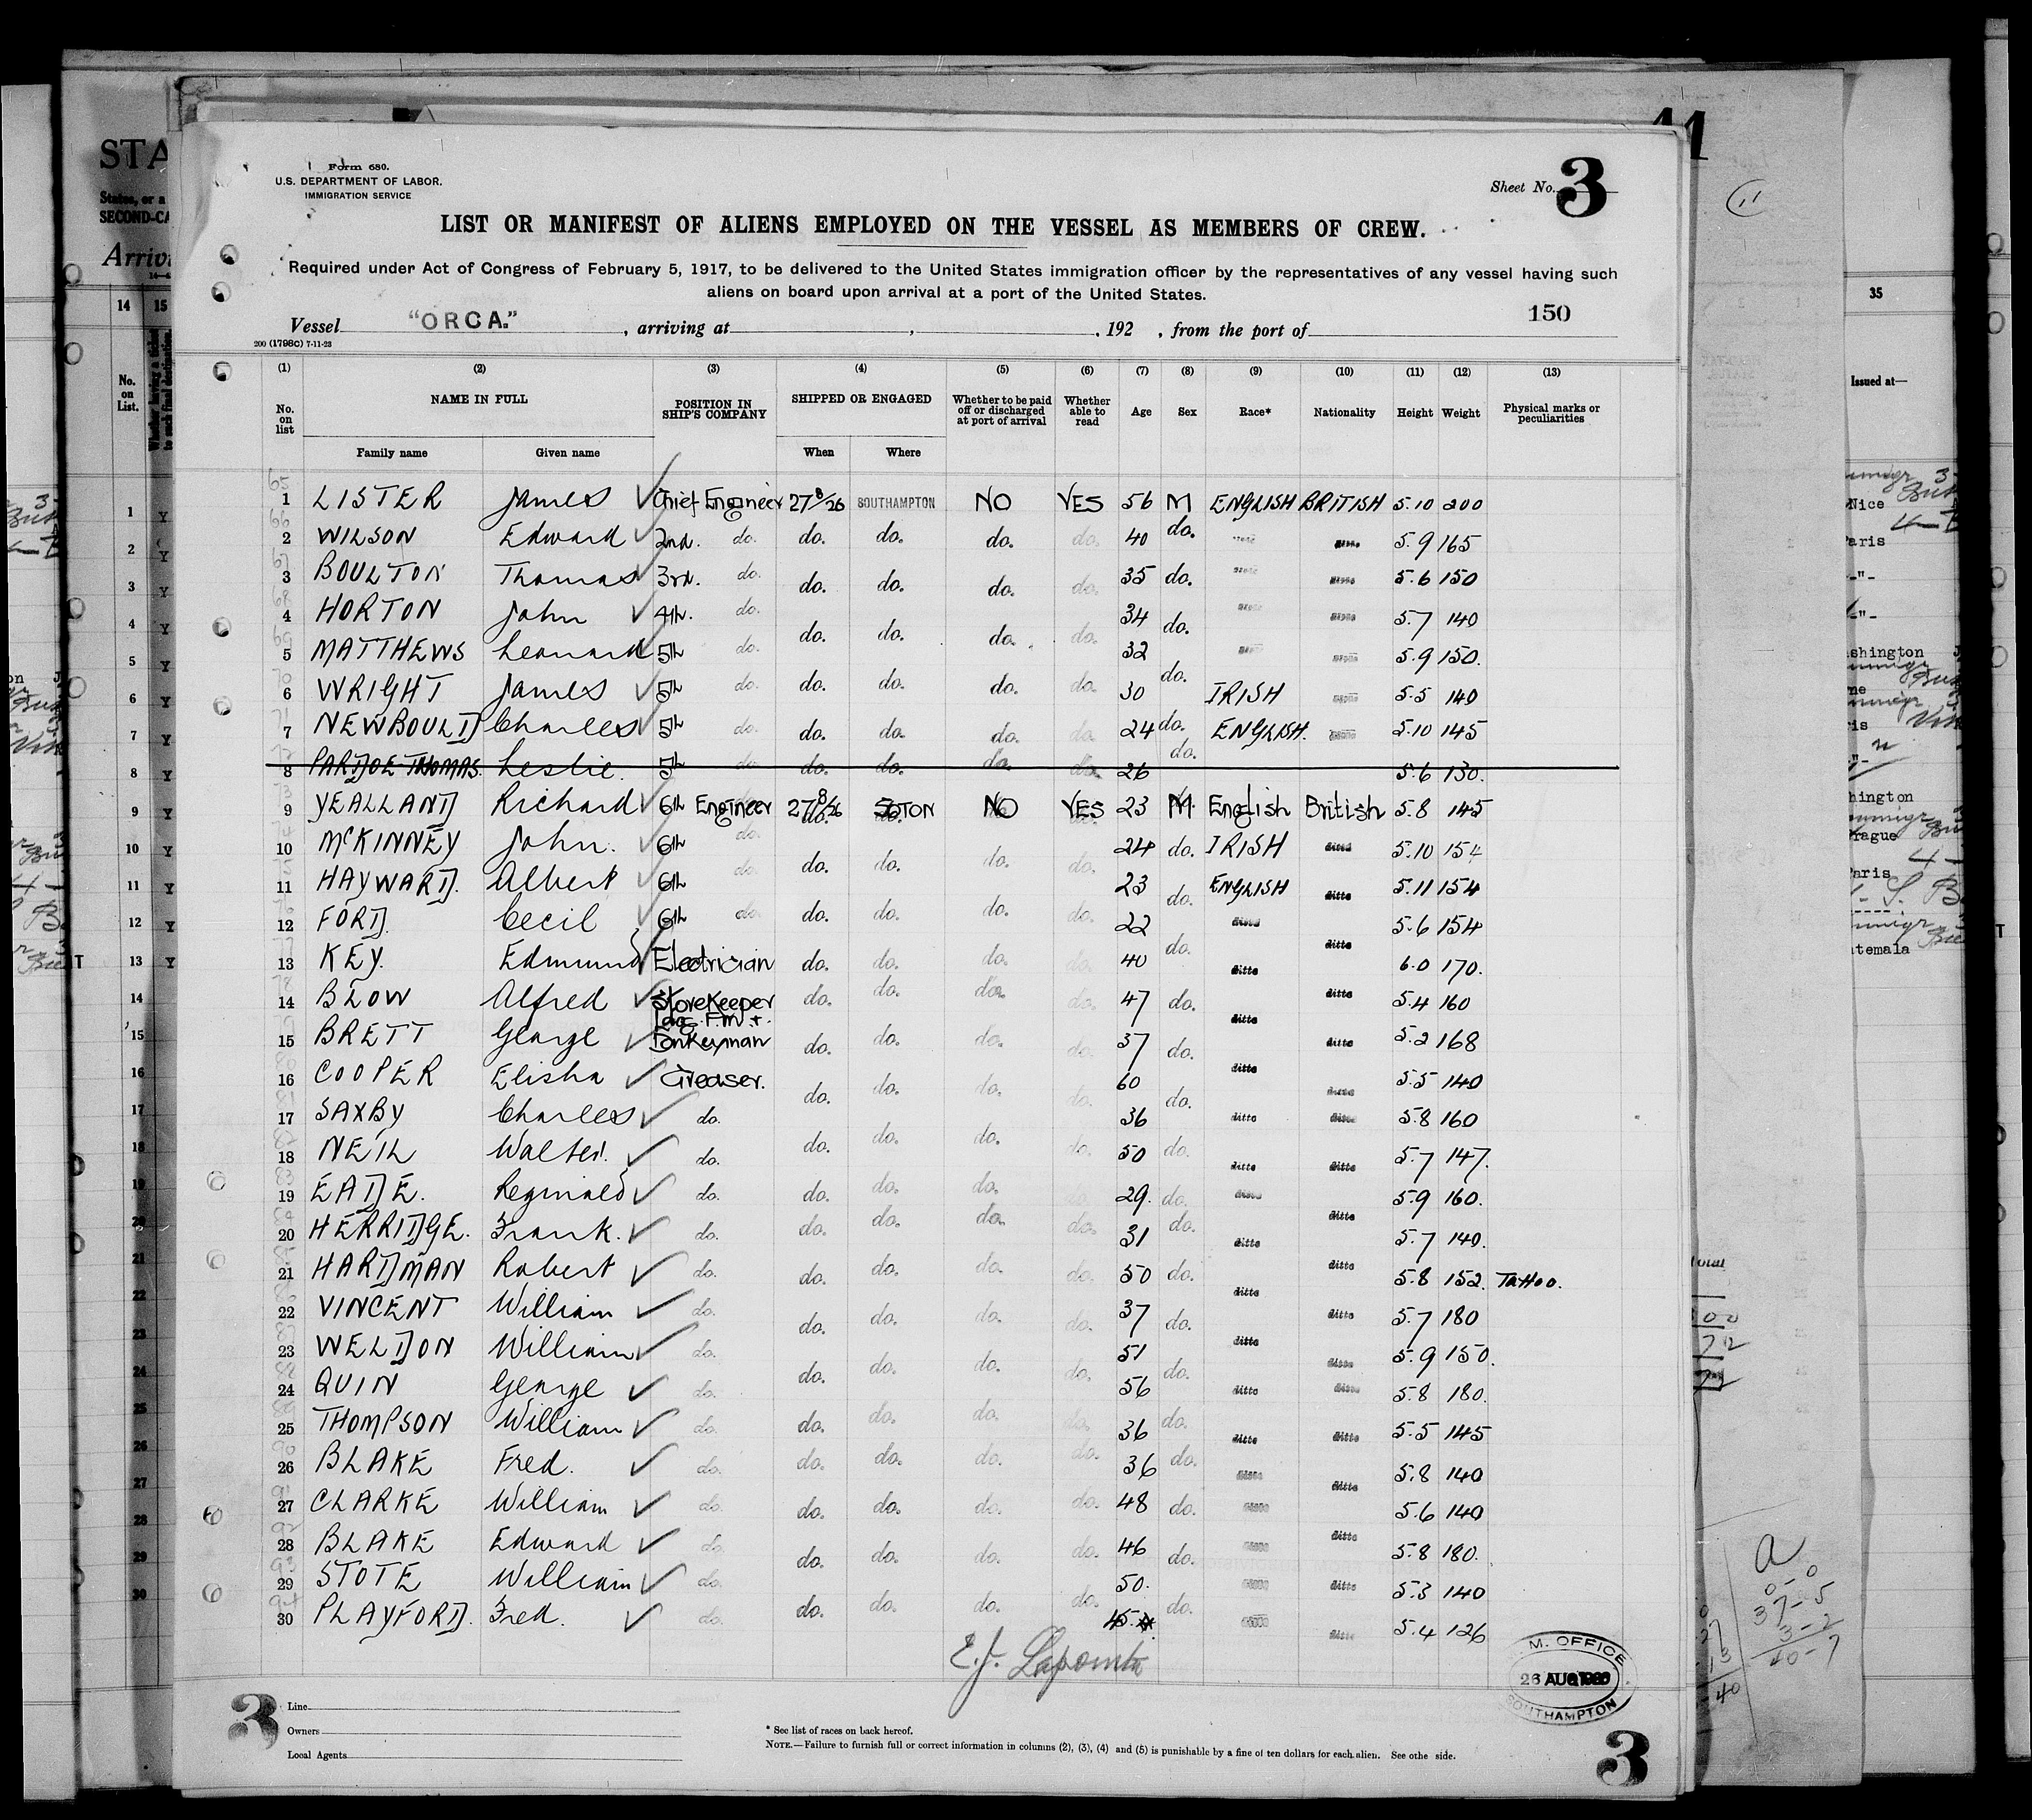 Form 680.
U.S. DEPARTMENT OF LABOR.
IMMIGRATION SERVICE
Sheet No. 3
LIST OR MANIFEST OF ALIENS EMPLOYED ON THE VESSEL AS MEMBERS OF CREW.
Required under Act of Congress of February 5, 1917, to be delivered to the United States immigration officer by the representatives of any vessel having such
aliens on board upon arrival at a port of the United States.
150
Vessel "ORCA." , arriving at , , 192 , from the port of
200 (1798C) 7-11-23
(1) (2) (3) (4) (5) (6) (7) (8) (9) (10) (11) (12) (13)
No. on list NAME IN FULL POSITION IN SHIP'S COMPANY SHIPPED OR ENGAGED Whether to be paid off or discharged at port of arrival Whether able to read Age Sex Race* Nationality Height Weight Physical marks or peculiarities
Family name Given name When Where
1 LISTER James Chief Engineer 27/8/26 SOUTHAMPTON NO YES 56 M ENGLISH BRITISH 5.10 200
2 WILSON Edward 2nd. do. do. do. do. do. 40 do. 5.9 165
3 BOULTON Thomas 3rd. do. do. do. do. do. 35 do. 5.6 150
4 HORTON John 4th. do. do. do. do. do. 34 do. 5.7 140
5 MATTHEWS Leonard 5th do. do. do. do. do. 32 5.9 150.
6 WRIGHT James 5th do. do. do. do. do. 30 do. IRISH 5.5 140
7 NEWBOULD Charles 5th do. do. do. do. do. 24 do. ENGLISH. 5.10 145
8 PARDOE THOMAS. Leslie. 5th do. do. do. do. do. 26 do. 5.6 130.
9 YEALLAND Richard 6th Engineer 27/8/26 SOTON NO YES 23 M. English British 5.8 145
10 McKINNEY John. 6th do. do. do. do. do. 24 do. IRISH ditto 5.10 154
11 HAYWARD. Albert 6th do. do. do. do. do. 23 do. ENGLISH ditto 5.11 154
12 FORD. Cecil 6th do. do. do. do. do. 22 do. ditto ditto 5.6 154
13 KEY. Edmund Electrician do. do. do. do. 40 ditto 6.0 170.
14 BLOW Alfred Storekeeper do. do. do. 47 do. ditto ditto 5.4 160
15 BRETT George Ldg. F.M. + Donkeyman do. do. do. do. 37 do. ditto ditto 5.2 168
16 COOPER Elisha Greaser. do. do. do. do. 60 do. ditto ditto 5.5 140
17 SAXBY Charles do. 36 ditto ditto 5.8 160
18 NEIL Walter. do. do. do. do. do. 50 do. ditto ditto 5.7 147.
19 EADE. Reginald do. do. do. do. do. 29. do. ditto 5.9 160.
20 HERRIDGE. Frank. do. do. do. do. do. 31 do. ditto ditto 5.7 140.
21 HARDMAN Robert do. do. do. do. do. 50 do. ditto ditto 5.8 152. Tattoo.
22 VINCENT William do. do. do. do. do. 37 do. ditto 5.7 180
23 WELDON William do. do. do. do. do. 51 do. ditto ditto 5.9 150.
24 QUIN George do. 56 ditto ditto 5.8 180.
25 THOMPSON William do. do. do. do. do. 36 do. ditto ditto 5.5 145
26 BLAKE Fred. do. do. do. do. do. 36 do. ditto 5.8 140
27 CLARKE William do. do. do. do. do. 48 do. 5.6 140
28 BLAKE Edward do. do. do. do. do. 46 do. ditto 5.8 180.
29 STOTE William do. 50. ditto 5.3 140
30 PLAYFORD. Fred. do. do. do. do. do. 45 do. ditto 5.4 126
E.J. Lapointe
M. OFFICE
26 AUG 1926
SOUTHAMPTON
3
Line
Owners
Local Agents
* See list of races on back hereof.
NOTE.—Failure to furnish full or correct information in columns (2), (3), (4) and (5) is punishable by a fine of ten dollars for each alien. See othe side.
3